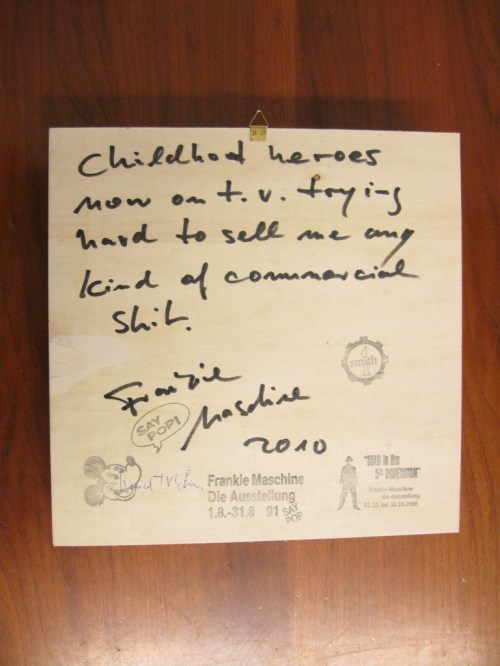 Childhood heroes
now on t.v. trying
hard to sell me any
kind of commercial
shit.
smith
Frankie
Maschine
2010
SAY
POP!
Frankie Maschine
Die Ausstellung
1.8.-31.8 91
SAY
POP
"MAN in the
5th DIMENSION"
Frankie Maschine
die Ausstellung